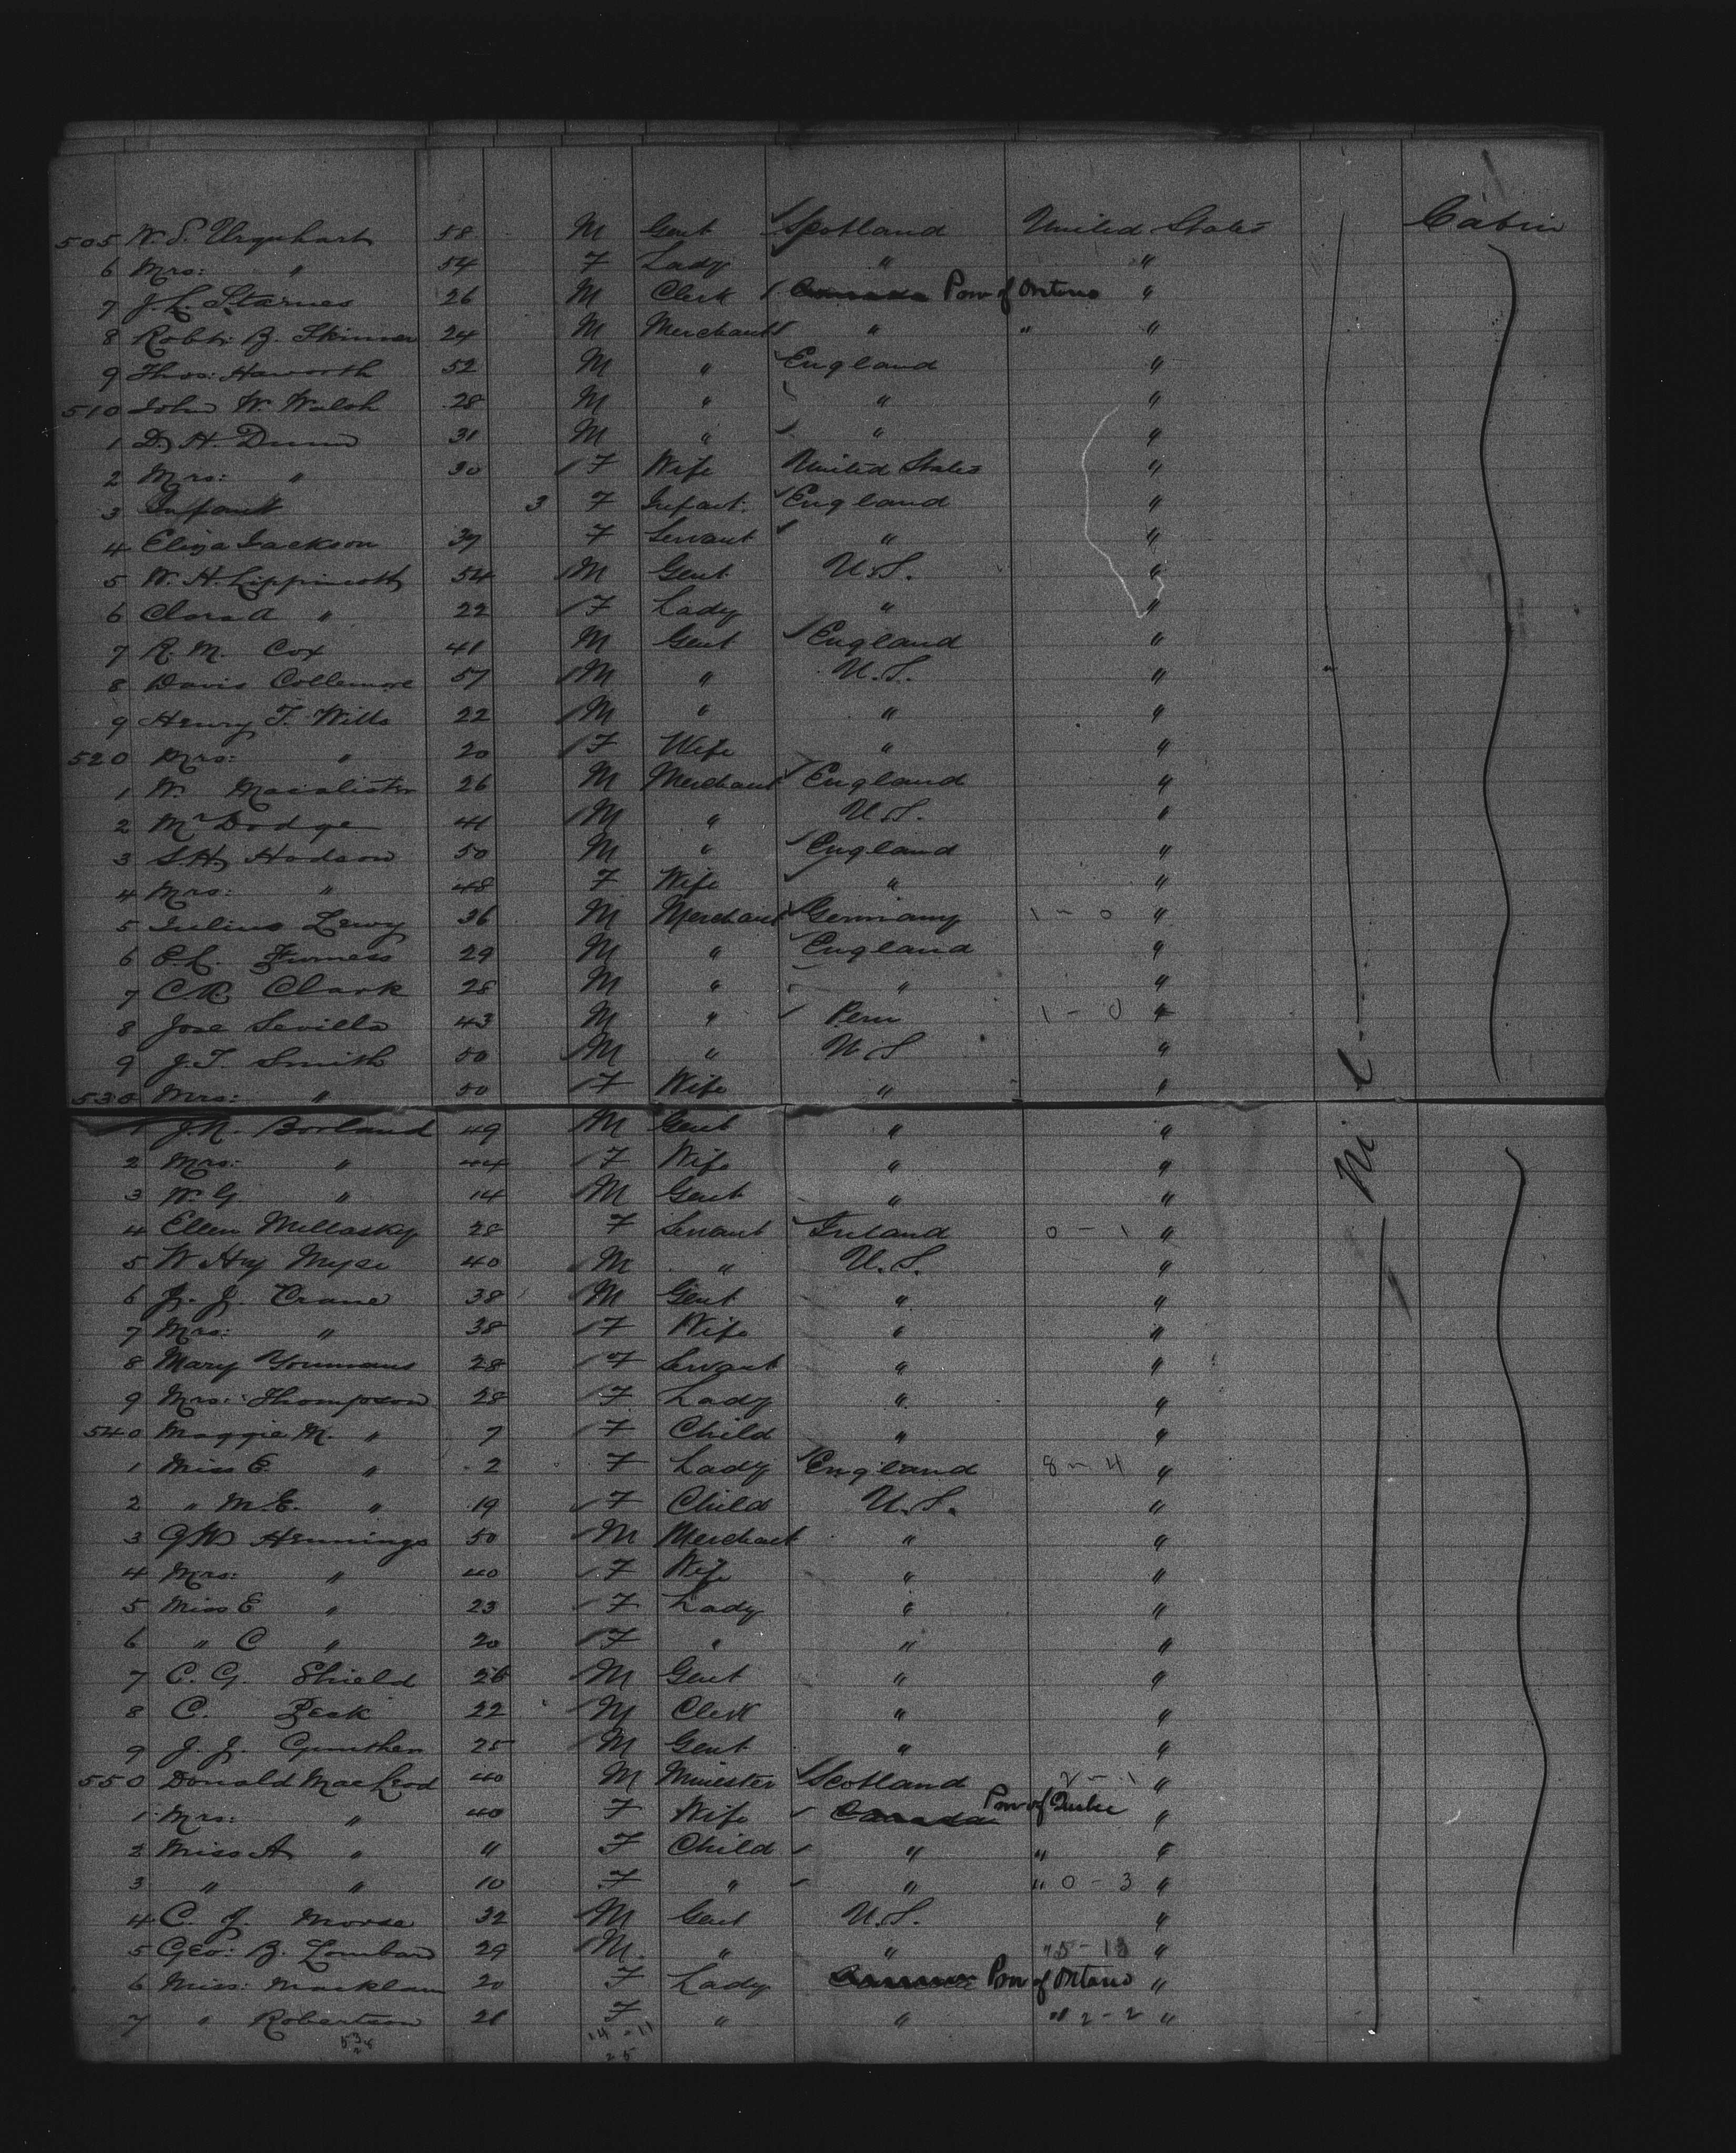 505 W. S. Urquhart 58 M Gent Scotland United States Cabin
6 Mrs: " 54 F Lady " "
7 J. L. Starnes 26 M Clerk Canada Prov of Ontario "
8 Robt. B. Skinner 24 M Merchant " " "
9 Thos: Haworth 52 M " England "
510 John W. Walsh 28 M " " "
1 D. H. Dunn 31 M " " "
2 Mrs: " 30 F Wife United States "
3 Infant 3 F Infant. England "
4 Eliza Jackson 39 F Servant " "
5 W. H. Lippincott 54 M Gent U.S. "
6 Clara A " 22 F Lady " "
7 R. M. Cox 41 M Gent England "
8 Davis Collamore 57 M " U.S. "
9 Henry T. Wills 22 M " " "
520 Mrs: " 20 F Wife " "
1 W. Macalister 26 M Merchant England "
2 Mr Dodge 41 M " U.S. "
3 S.H. Hodson 50 M " England "
4 Mrs: " 48 F Wife " "
5 Julius Lewy 36 M Merchant Germany 1 - 0 "
6 29 M " England "
7 C.R. Clark 28 M " " "
8 Jose Sevilla 43 M " Peru 1 - 0 "
9 J.T. Smith 50 M " U S "
530 Mrs: " 50 F Wife " "
1 J.N. Borland 49 M Gent " "
2 Mrs: " 44 F Wife " "
3 W. G " 14 M Gent " "
4 Ellen 28 F Servant Ireland 0 - 1 "
5 W Hy 40 M " U.S. "
6 J. J. Crane 38 M Gent " "
7 Mrs: " 38 F Wife " "
8 Mary Youmans 28 F Servant " "
9 Mrs: Thompson 28 F Lady " "
540 Maggie M. " 7 F Child " "
1 Miss E. " 2 F Lady England 8 - 4 "
2 " M.E. " 19 F Child U.S. "
3 Hennings 50 M Merchant " "
4 Mrs: " 40 F Wife " "
5 Miss E " 23 F Lady " "
6 " C " 20 F " " "
7 C. G. Shield 26 M Gent " "
8 C. Peck 22 M Clerk " "
9 J. J. Gunther 25 M Gent " "
550 Donald MacLeod 40 M Minester Scotland 2 - 1 "
1 Mrs: " 40 F Wife Canada Prov of Quebec "
2 Miss A " 11 F Child " " "
3 " " 10 F " " " 0 - 3 "
4 C. J. Morse 32 M Gent U.S. "
5 Geo: B. Lombard 29 M. " " "
6 Miss: 20 F Lady Prov of Ontario "
7 " Robertson 21 F " " " 2 - 2 "
14 - 11
25
Nil